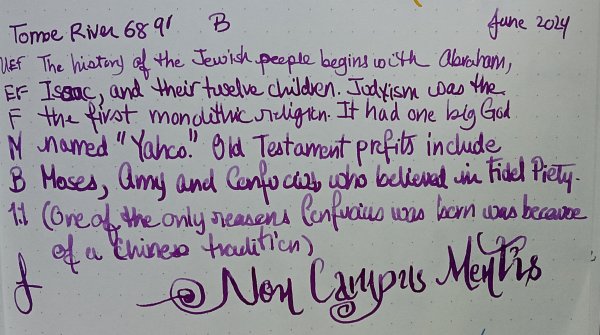 Tomoe River 68 g B June 2024
UEF The history of the Jewish people begins with Abraham,
EF Issac, and their twelve children. Judyism was the
F the first monolithic religion. It had one big God
M named "Yahoo." Old Testament profits include
B Moses, Amy and Confucius, who believed in Fidel Piety.
1.1 (One of the only reasons Confucius was born was because
of a Chinese tradition)
f Non Campus Mentis